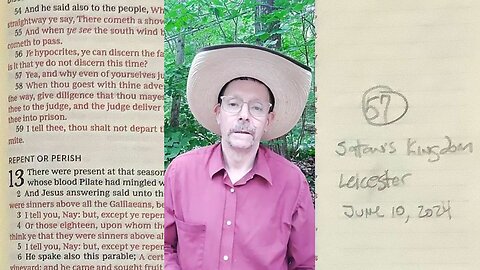 54 And he said also to the people, Wh
straightway ye say, There cometh a show
55 And when ye see the south wind b
cometh to pass.
56 Ye hypocrites, ye can discern the fa
is it that ye do not discern this time?
57 Yea, and why even of yourselves ju
58 When thou goest with thine adve
the way, give diligence that thou maye
thee to the judge, and the judge deliver
thee into prison.
59 I tell thee, thou shalt not depart th
mite.
REPENT OR PERISH
13 There were present at that season
whose blood Pilate had mingled w
2 And Jesus answering said unto the
were sinners above all the Galilaeans, be
3 I tell you, Nay: but, except ye repen
4 Or those eighteen, upon whom the
think ye that they were sinners above all
5 I tell you, Nay: but, except ye repen
6 He spake also this parable; A certa
vineyard; and he came and sought fruit
57
Satan's Kingdom
Leicester
June 10, 2024